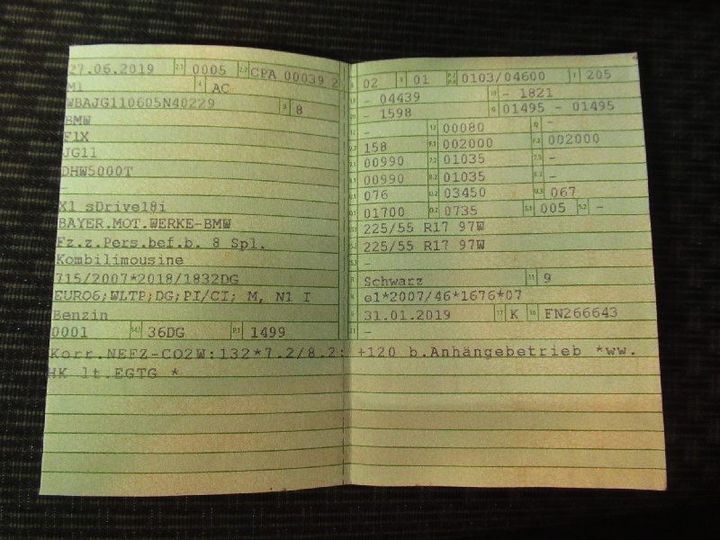 27.06.2019 0005 CPA 00039 2
M1 AC
WBAJG110605N40229 8
BMW
F1X
JG11
DHW5000T
X1 sDrive18i
BAYER.MOT.WERKE-BMW
Fz.z.Pers.bef.b. 8 Spl.
Kombilimousine
715/2007*2018/1832DG
EURO6;WLTP;DG;PI/CI; M, N1 I
Benzin
0001 36DG 1499
02 01 0103/04600 205
- 04439 - 1821
- 1598 01495 - 01495
- 00080 -
158 002000 002000
00990 01035 -
00990 01035 -
076 03450 067
01700 0735 005 -
225/55 R17 97W
225/55 R17 97W
-
Schwarz 9
e1*2007/46*1676*07
31.01.2019 K FN266643
-
Korr.NEFZ-CO2W:132*7.2/8.2: +120 b.Anhängebetrieb *ww.
HK lt.EGTG *